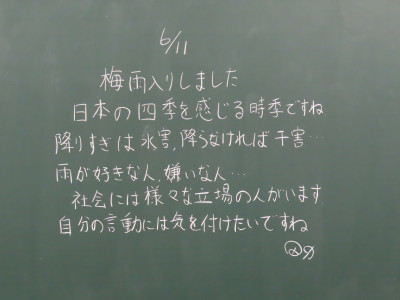 6/11
梅雨入りしました
日本の四季を感じる時季ですね
降りすぎは水害、降らなければ干害…
雨が好きな人、嫌いな人…
社会には様々な立場の人がいます
自分の言動には気を付けたいですね